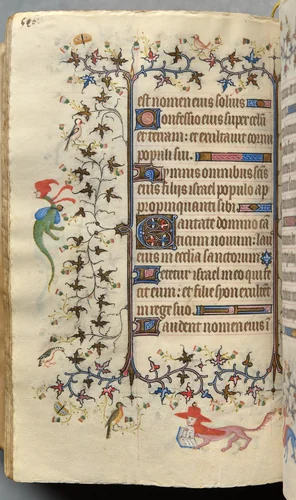 est nomen eius solius
Confessio eius super celū
et terram: et exultauit cornu
populi sui.
Ymnus omnibus scīs
eius filijs israel populo ap
propinquanti sibi.
Cantate domino cā
ticum nouum: lau
eius in ecclia sanctorum
Letetur israel in eo qui fe
cit eum: et filie syon exultēt
in rege suo.
Laudent nomen eius ī